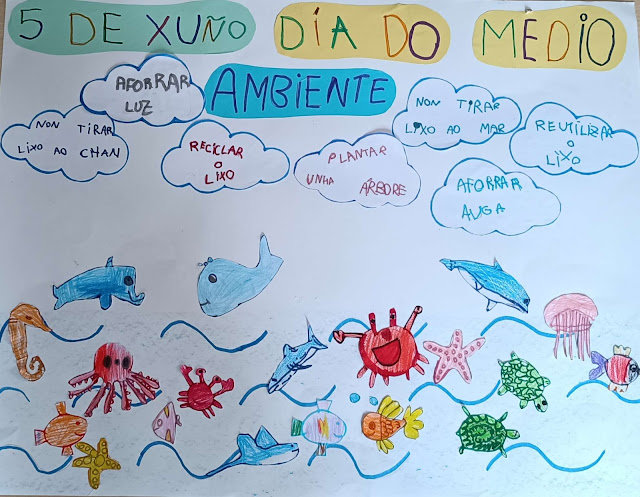 5 DE XUÑO DÍA DO MEDIO
AMBIENTE
AFORRAR
LUZ
NON TIRAR
LIXO AO CHAN
RECICLAR
O
LIXO
PLANTAR
UNHA ÁRBORE
NON TIRAR
LIXO AO MAR
REUTILIZAR
O
LIXO
AFORRAR
AUGA